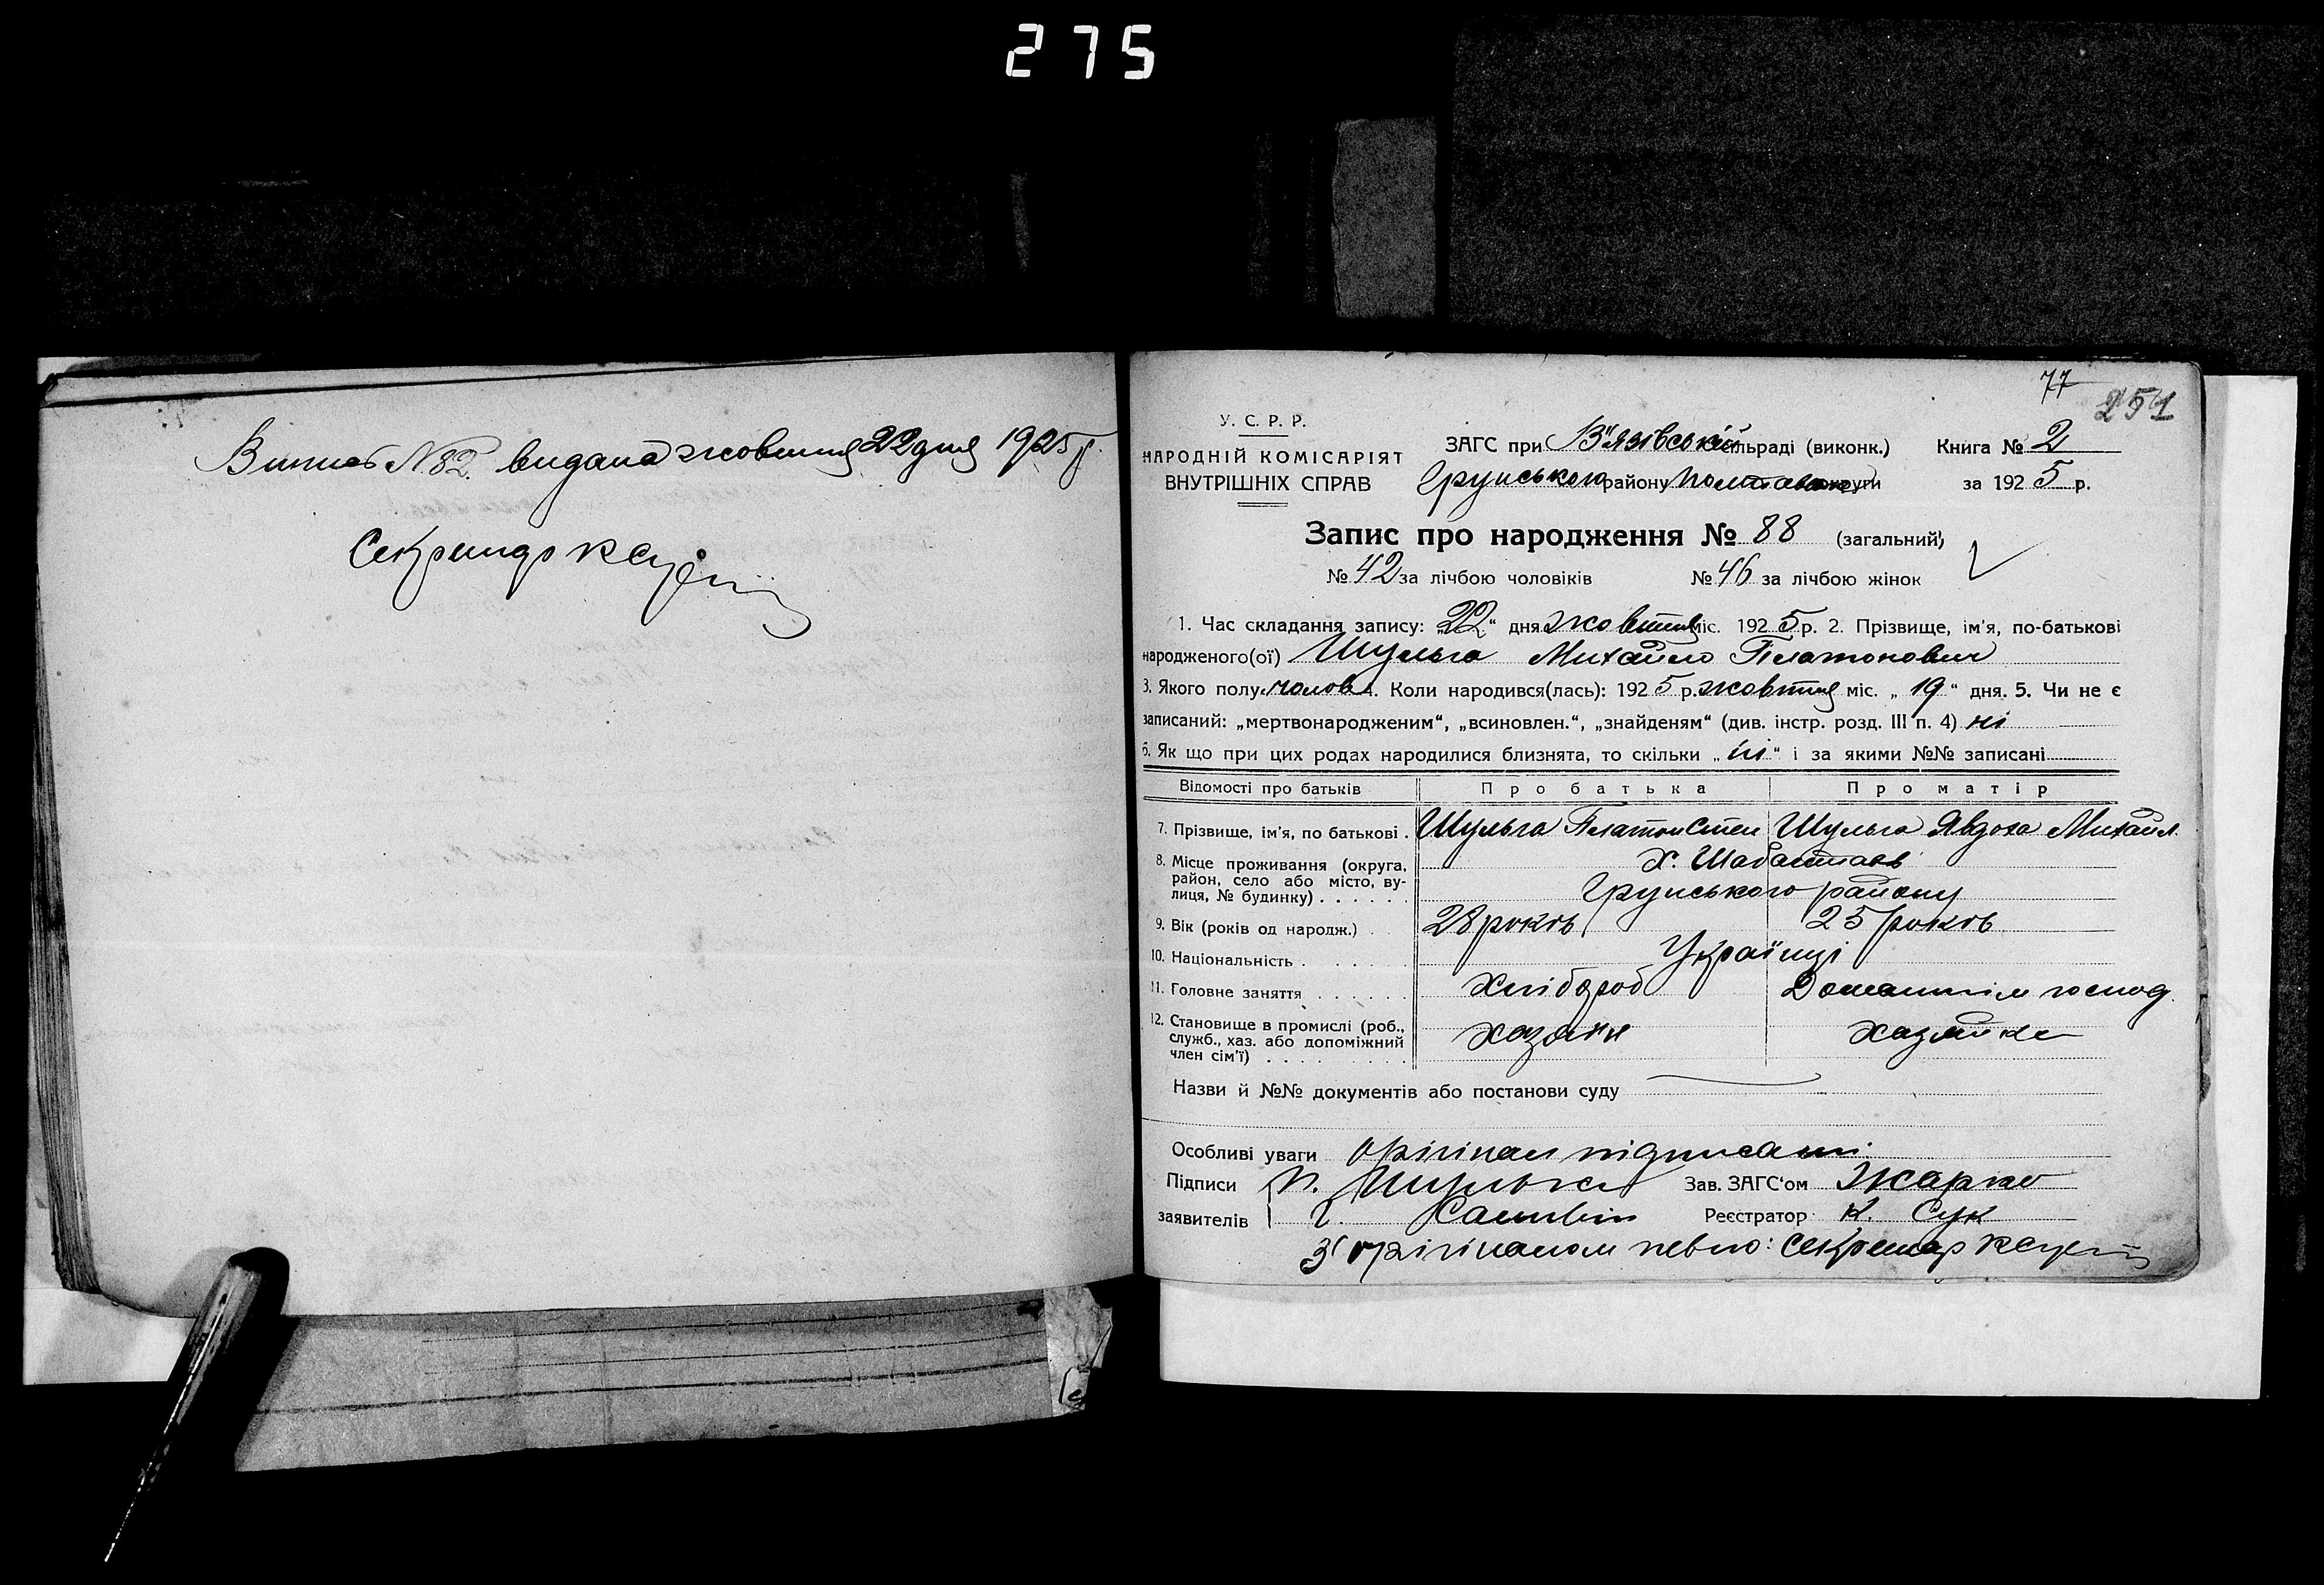 275
Випис N 82. видана жовтня 22 дня 1925 р.
Секретар
77
251
У. С. Р. Р.
НАРОДНІЙ КОМІСАРІЯТ
ВНУТРІШНІХ СПРАВ
ЗАГС при В'язівській сільраді (виконк.) Книга № 2
Грунського району Полтавської округи за 1925 р.
Запис про народження № 88 (загальний)
№ 42 за лічбою чоловіків № 46 за лічбою жінок
1. Час складання запису: „22“ дня жовтня міс. 1925 р. 2. Прізвище, ім'я, по-батькові
народженого(ої) Шульга Михайло Платонович
3. Якого полу чолов 4. Коли народився(лась): 1925 р. жовтня міс. „19“ дня. 5. Чи не є
записаний: „мертвонародженим“, „всиновлен.“, „знайденям“ (див. інстр. розд. III п. 4) ні
6. Як що при цих родах народилися близнята, то скільки „ні“ і за якими №№ записані
Відомості про батьків Про батька Про матір
7. Прізвище, ім'я, по батькові . Шульга Платон Степ Шульга Явдоха Михайл.
8. Місце проживання (округа, район, село або місто, вулиця, № будинку) . . . . . . х.
Грунського району
9. Вік (років од народж.) . 28 років 25 років
10. Національність . . . . . Українці
11. Головне заняття . . . . . . Хлібороб Домашнім господ.
12. Становище в промислі (роб., служб., хаз. або допоміжний член сім'ї) . . . . . . . . Хазяїн Хазяйка
Назви й №№ документів або постанови суду
Особливі уваги Орігінал підписали:
Підписи П. Шульга Зав. ЗАГС'ом Жарко
заявителів Г. Реєстратор К. Сук
З орігіналом певно: Секретар